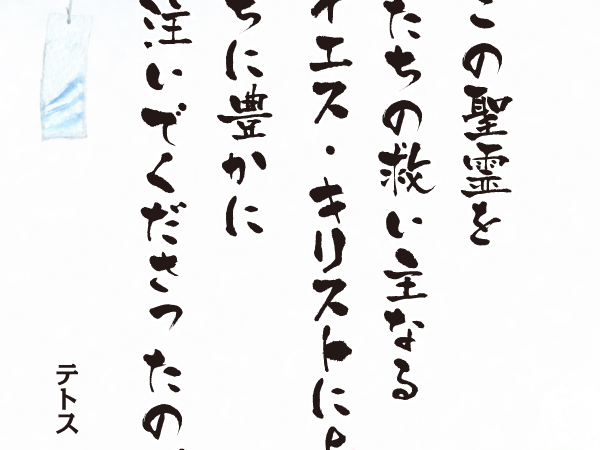 この聖霊を
たちの救い主なる
イエス・キリストによ
ちに豊かに
注いでくださったの
テトス